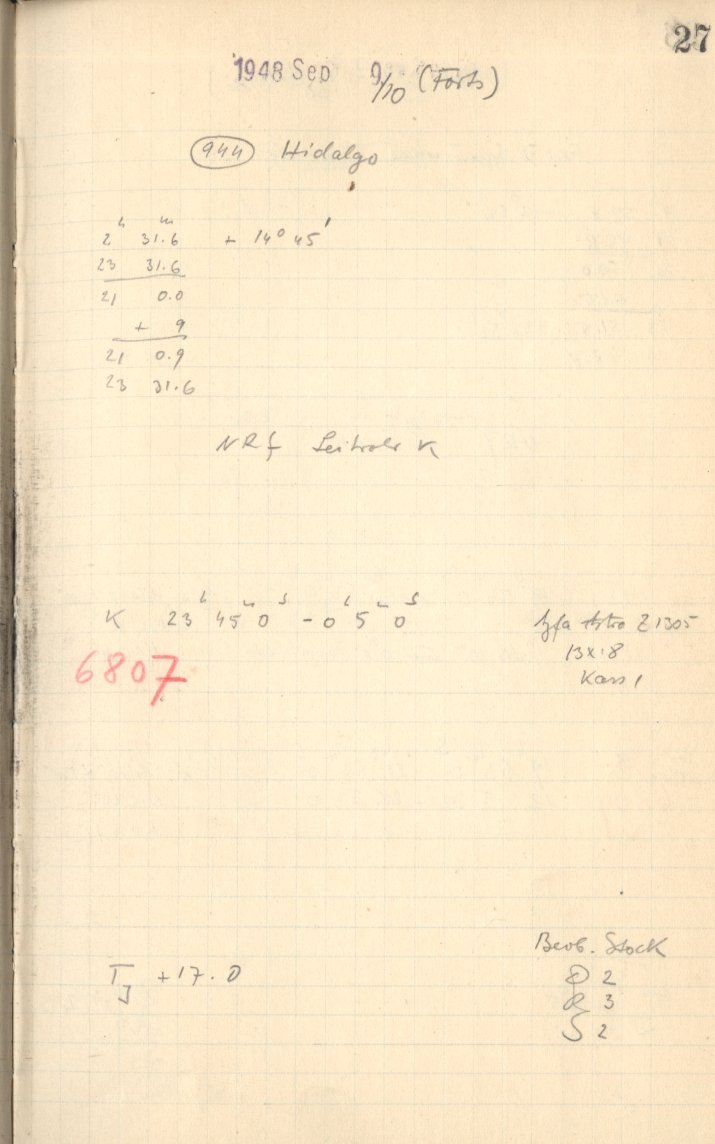 27
1948 Sep 9/10 (Forts)
944 Hidalgo
2ʰ 31.6ᵐ + 14° 45'
23 31.6
21 0.0
+ 9
21 0.9
23 31.6
NRf Leitrohr K
K 23ʰ 45ᵐ 0ˢ - 0ʰ 5ᵐ 0ˢ
Agfa Astro Z 1305
6807
13x18
Kass 1
T_J +17.0
Beob. Stock
2
R 3
S 2